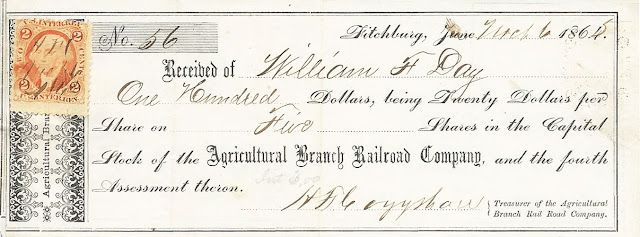 U.S. INTER. REV.
2 2
No. 56 Fitchburg, June 6 1865.
Received of William F Day
One Hundred Dollars, being Twenty Dollars per
Share on Five Shares in the Capital
Stock of the Agricultural Branch Railroad Company, and the fourth
Assessment theron.
Treasurer of the Agricultural
Branch Rail Road Company.
Agricultural Bran